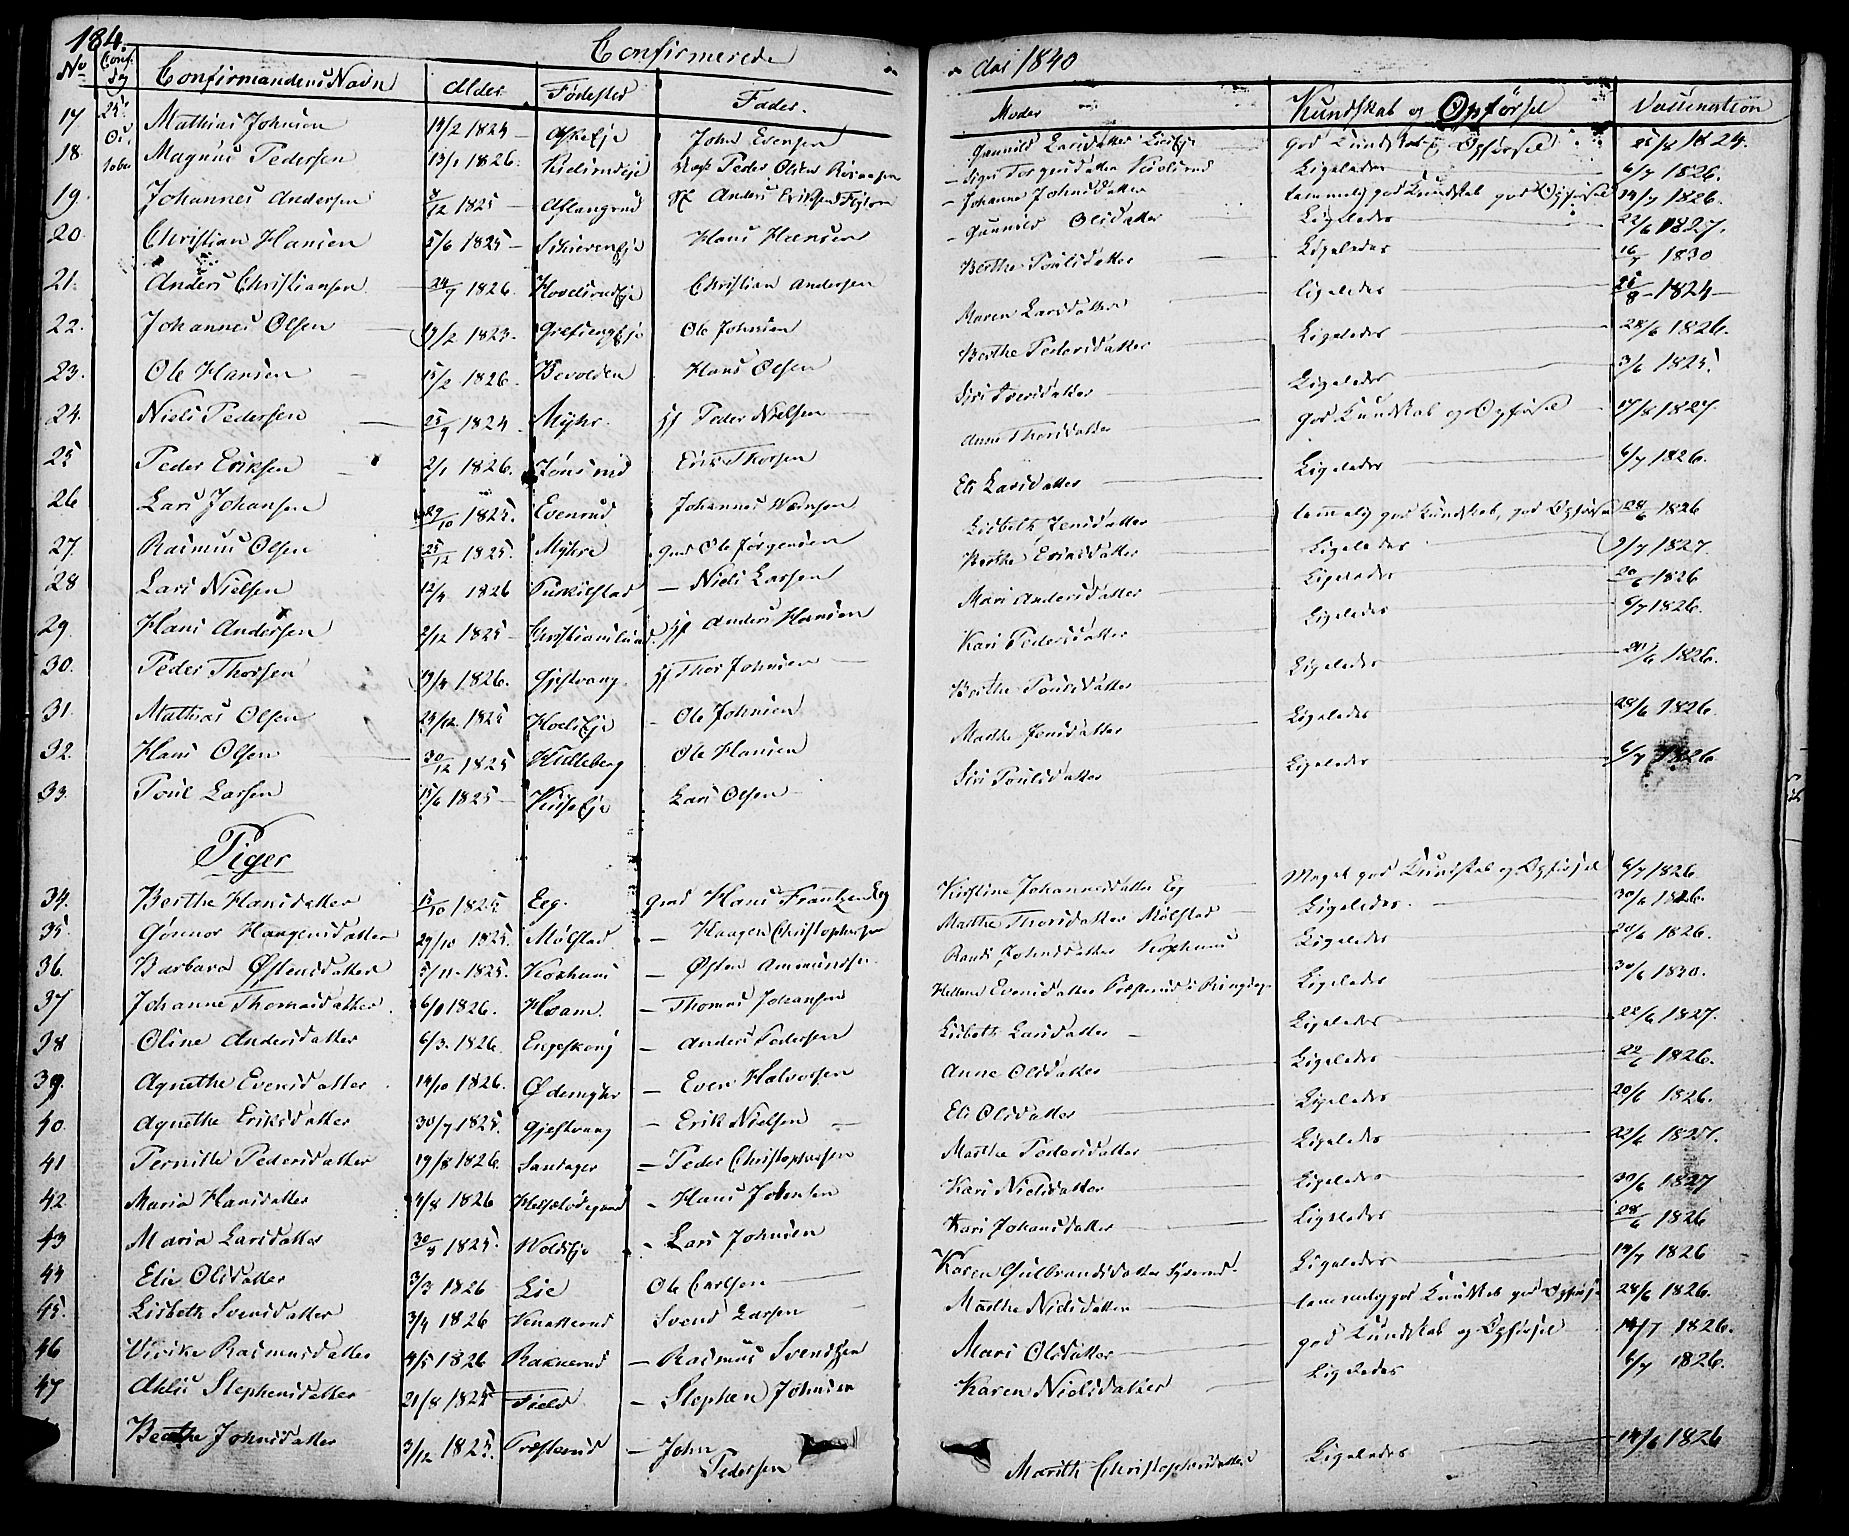 184.
Confirmerede
aar 1840
No Conf. Dg Confirmandens Navn Alder Fødested Fader. Moder Kundskab og Opførsel Vaccination
17 25. October Mathias Johnsen 14/2 1824 AskeEje John Evensen Gunnild Larsdatter god Kundskab og Opførsel 25/8 1824.
18. Magnus Pedersen 13/1 1826. Peder Olsen Ligeledes 6/7 1826.
19. Johannes Andersen 4/12 1825 Aslangrud Anders Eriksen Johanne Johnsdatter temmelig god Kundskab god Opførsel 14/7 1826.
20. Christian Hansen 5/6 1825 Hans Hansen Gunnild Olsdatter Ligeledes 22/6 1827.
21. Anders Christiansen 24/9 1826. HovelsrudEje Christian Andersen Berthe Poulsdatter Ligeledes 16/7 1830
22. Johannes Olsen 19/2 1823. GrefsengEje Ole Johnsen Maren Larsdatter ligeledes 25/8 1824
23. Ole Hansen 15/2 1826. Bevolden Hans Olsen Berthe Pedersdatter Ligeledes 28/6 1826.
24. Niels Pedersen 25/9 1824. Myhr. Peder Nielsen Siri Iversdatter Ligeledes 3/6 1825
25 Peder Eriksen 2/1 1826. Jønsrud Erik Thorsen Anne Thorsdatter god Kundskab og Opførsel 17/8 1827.
26 Lars Johansen 29/10 1825. Evenrud Johannes Eli Larsdatter Ligeledes 6/7 1826.
27. Rasmus Olsen 25/12 1825. Myhre Gmd Ole Jørgensen Lisbeth Jensdatter temmelig god Kundskab, god Opførsel 28/6 1826
28 Lars Nielsen 12/4 1826 Turkilstad Niels Larsen Berthe Eriksdatter Ligeledes 9/7 1827.
29. Hans Andersen 2/12 1825 Christianslund Anders Hansen Mari Andersdatter Ligeledes 20/6 1826
30. Peder Thorsen 19/4 1826. Gjestvang Thor Johnsen Kari Pedersdatter Ligeledes 6/7 1826.
31. Mathias Olsen 23/12. 1825 HoelsEje Ole Johnsen Berthe Poulsdatter Ligeledes 20/6 1826.
32. Hans Olsen 30/12 1825 Hulleberg Ole Hansen Marthe Jensdatter Ligeledes 28/6 1826.
33. Poul Larsen 15/6 1825 Lars Olsen Siri Poulsdatter Ligeledes 6/7 1826
Piger
34. Berthe Hansdatter 15/10 1825 Eeg. Gmd Hans Frantzen Eeg Kirstine Johannesdatter Eeg Meget god Kundskab og Opførsel 6/7 1826.
35. Gønnor Haagensdatter 29/10 1825. Mølstad. Haagen Christophersen Marthe Thorsdatter Mølstad Ligeledes. 30/6 1826.
36. Barbara Østensdatter 5/11 1825. Korhuus Østen Ammundsen Randi Johnsdatter Korhuus Ligeledes 20/6 1826.
37 Johanne Thomasdatter 6/1 1826. Hoam. Thomas Johansen Hellene Evensdatter Præsterud i Ringsager Ligeledes 30/6 1830.
38 Oline Andersdatter 6/3. 1826. Engeskoug Anders Pedersen Lisbeth Larsdatter Ligeledes 22/6 1827.
39. Agnethe Evensdatter 14/10 1826. Ødemyhr Even Halvorsen Anne Olsdatter Ligeledes 20/6 1826.
40. Agnethe Eriksdatter 30/7 1825. Gjestvang Erik Nielsen Eli Olsdatter Ligeledes 20/6 1826.
41 Pernille Pedersdatter 19/8 1826. Sandager Peder Christophersen Marthe Pedersdatter Ligeledes 22/6 1827.
42. Maria Hansdatter 4/8 1826 Hans Johnsen Kari Nielsdatter Ligeledes 30/6 1827
43 Maria Larsdatter 30/3 1825. WoldsEje Lars Johnsen Kari Johansdatter Ligeledes 28/6 1826
44 Elie Olsdatter 3/3 1826 Lie Ole Carlsen Karen Gulbrandsdatter Ligeledes 14/7 1826
45. Lisbeth Svensdatter 3/4 1826 Svend Larsen Marthe Nielsdatter temmelig god Kundskab god Opførsel 28/6 1826.
46 Vivike Rasmusdatter 4/5 1826 Raknerud Rasmus Svendsen Mari Olsdatter god Kundskab og Opførsel 14/7 1826.
47 Ahlis Stephensdatter 21/8 1825 Field Stephen Johnsen Karen Nielsdatter Ligeledes 6/7 1826.
Berthe Johnsdatter 3/12 1825. Præsterud John Pedersen Marith Christophersdatter Ligeledes 14/6 1826